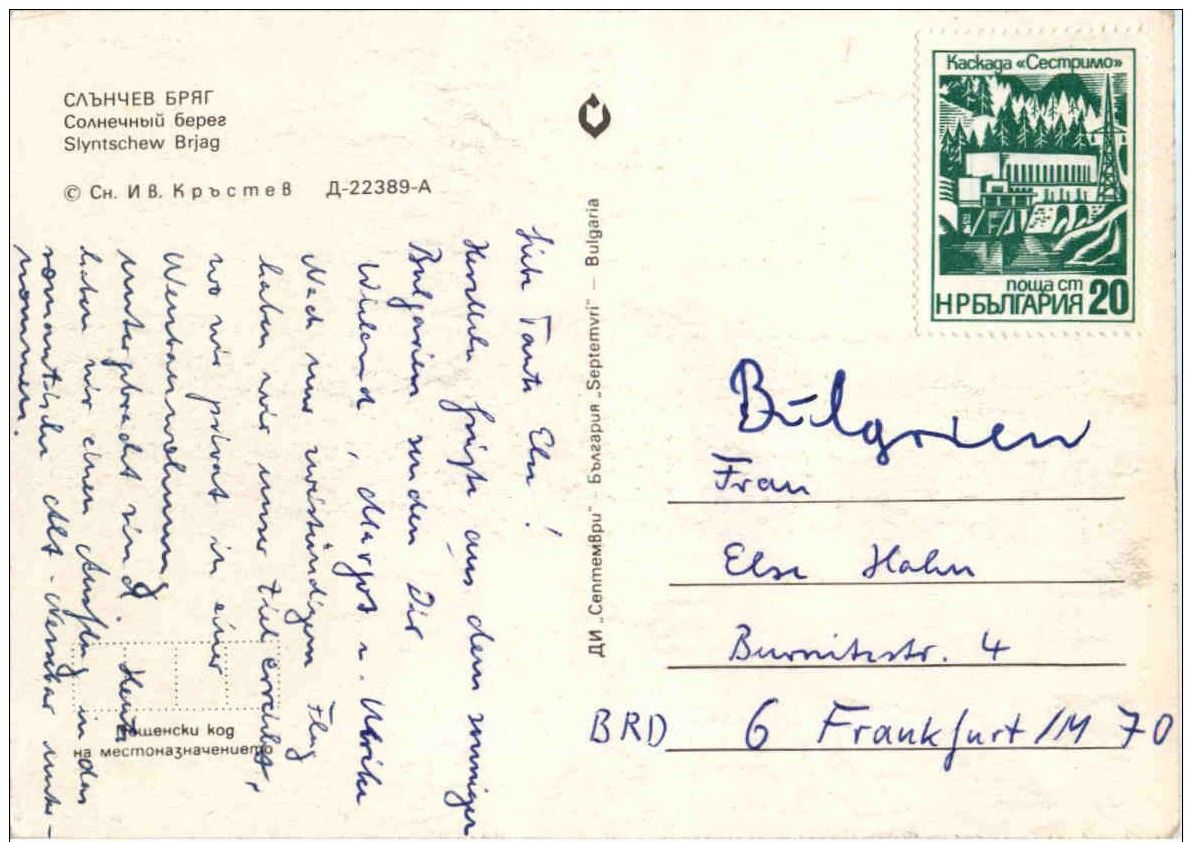 СЛЪНЧЕВ БРЯГ
Солнечный берег
Slyntschew Brjag
© Сн. Ив. Кръстев Д-22389-А
Liebe Tante Else!
Herzliche Grüße aus dem sonnigen
Bulgarien senden Dir
Wieland, Margot u. Ulrike
Nach nur zweistündigem Flug
haben wir unser Ziel erreicht,
wo wir privat in einer
Weinbauwohnung
untergebracht sind. Heute
haben wir einen Ausflug in das
romantische Alt-Nessebar unter-
nommen.
Пощенски код
на местоназначението
ДИ „Септември" - България „Septemvri" — Bulgaria
Каскада «Сестримо»
поща ст
НРБЪЛГАРИЯ 20
Bulgarien
Frau
Else Hahn
Burnitzstr. 4
BRD 6 Frankfurt/M 70